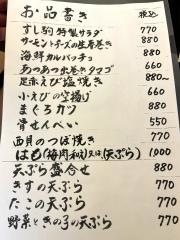 お品書き 税込
すし駒特製サラダ 770
サーモンとチーズの生春巻き 880
海鮮カルパッチョ 880
あつあつ出巻きタマゴ 660
足赤えび塩焼き 880
小えびの空揚げ 660
まぐろカツ 880
骨せんべい 550
西貝のつぼ焼き 770
はも(梅肉和え)又は(天ぷら) 1000
天ぷら盛合せ 880
きすの天ぷら 770
たこの天ぷら 770
野菜ときの子の天ぷら 770